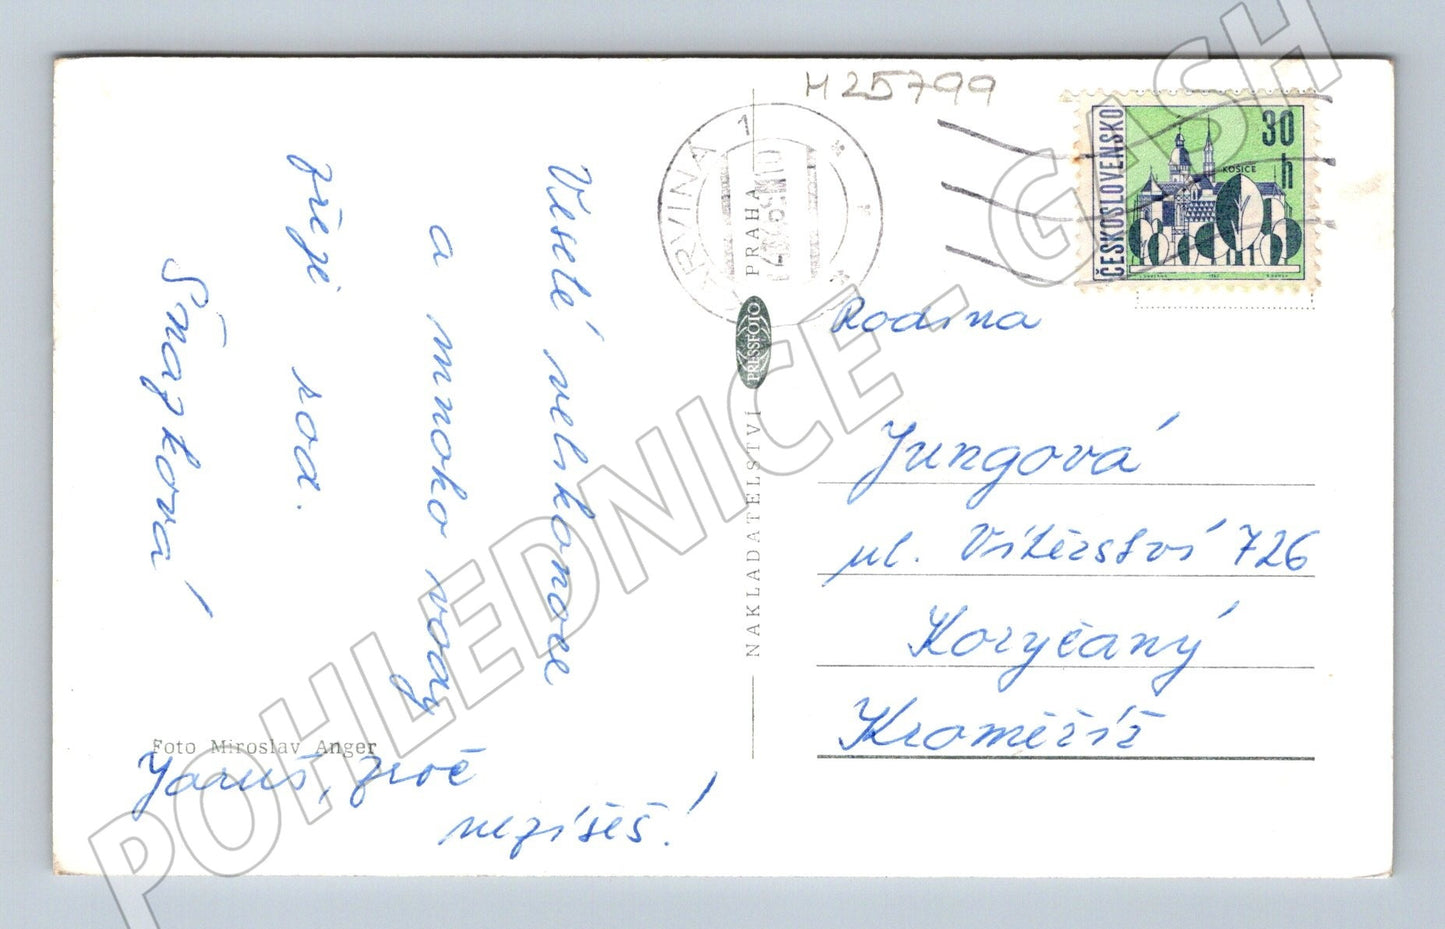 H25799
ČESKOSLOVENSKO
30 h
KOŠICE
KARVINA 1
Veselé velikonoce
a mnoho vody
přeje rod.
Šnapková!
Foto Miroslav Anger
Jaruš, proč
nepíšeš!
NAKLADATELSTVÍ PRESSFOTO PRAHA
Rodina
Jungová
ul. Vítězství 726
Koryčaný
Kroměříž
POHLEDNICE - GASH